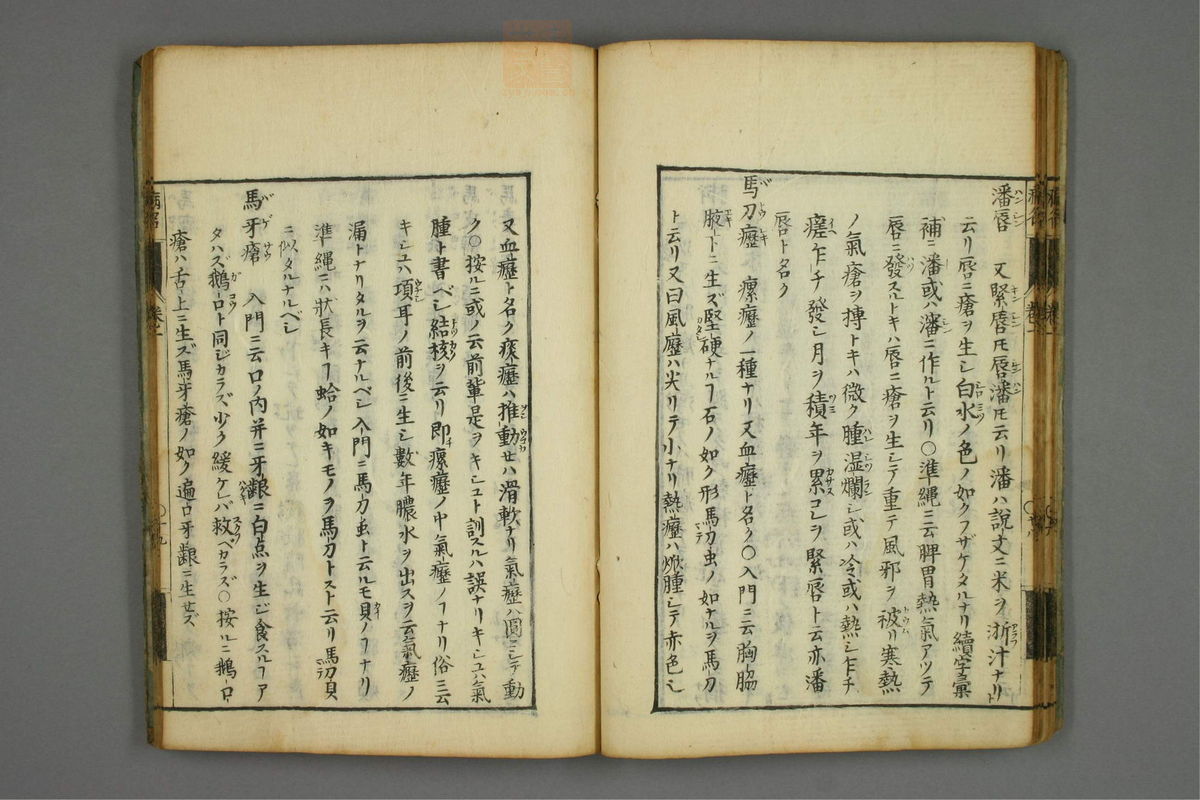 潘唇 又緊唇モ唇潘モ云リ潘ハ說文ニ米ヲ淅汁ナリト
云リ唇ニ瘡ヲ生シ白水ノ色ノ如クフザケタルナリ續字彙
補ニ潘或ハ瀋ニ作ルト云リ〇準縄ニ云脾胃熱氣アツテ
唇ニ發スルトキハ唇ニ瘡ヲ生シテ重テ風邪ヲ被リ寒熱
ノ氣瘡ヲ搏トキハ微ク腫湿爛シ或ハ冷或ハ熱シ乍チ
瘥乍チ發シ月ヲ積年ヲ累コレヲ緊唇ト云亦潘
唇ト名ク
馬刀癧 瘰癧ノ一種ナリ又血癧ト名ク〇入門ニ云胸脇
腋下ニ生ズ堅硬ナルヿ石ノ如ク形馬刀虫ノ如ナルヲ馬刀
ト云リ又曰風癧ハ尖リテ小ナリ熱癧ハ焮腫シテ赤色シ
又血癧ト名ク痰癧ハ推動セハ滑軟ナリ氣癧ハ圓ニシテ動
ク〇按ルニ或ノ云前輩是ヲキシユト訓スルハ誤ナリキシユハ氣
腫ト書ベシ結核ヲ云リ即瘰癧ノ中氣癧ノヿナリ俗ニ云
キシユハ項耳ノ前後ニ生シ數年膿水ヲ出スヲ云氣癧ノ
漏トナリタルヲ云ナルベシ入門ニ馬刀虫ト云ルモ貝ノヿナリ
準縄ニハ狀長キヿ蛤ノ如キモノヲ馬刀トスト云リ馬刀貝
ニ似タルナルベシ
馬牙瘡 入門ニ云口ノ内并ニ牙齦ニ白点ヲ生ジ食スルヿア
タハズ鵝口ト同ジカラズ少ク緩ケレバ救ベカラズ〇按ルニ鵝口
瘡ハ舌上ニ生ズ馬牙瘡ノ如ク遍口牙齦ニ生セズ